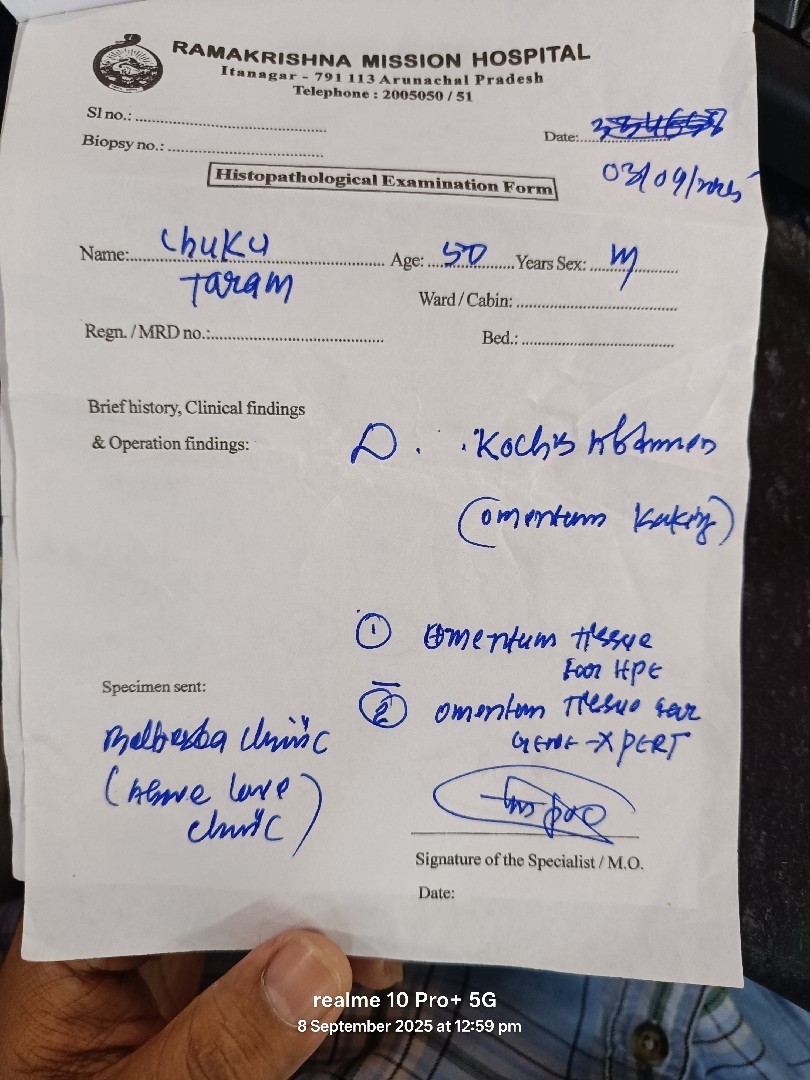 RAMAKRISHNA MISSION HOSPITAL
Itanagar - 791 113 Arunachal Pradesh
Telephone : 2005050 / 51
Sl no.:
Date:
Biopsy no.:
03/09/2025
Histopathological Examination Form
Name: Chuku Age: 50 Years Sex: M
Taram
Ward / Cabin:
Regn. / MRD no.:
Bed.:
Brief history, Clinical findings
& Operation findings:
D. Koch's Abdomen
(omentum
① omentum Tissue
for HPE
Specimen sent:
② omentum Tissue for
GENE-XPERT
clinic
(Above Love
clinic)
Signature of the Specialist / M.O.
Date:
realme 10 Pro+ 5G
8 September 2025 at 12:59 pm